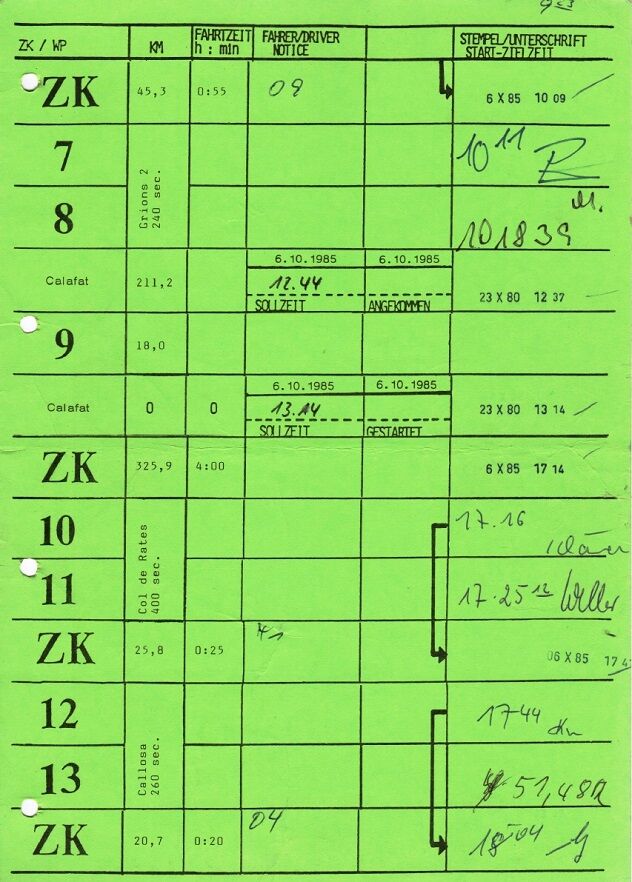 ZK / WP KM FAHRTZEIT h : min FAHRER/DRIVER NOTICE STEMPEL/UNTERSCHRIFT START-ZIELZEIT
ZK 45,3 0:55 09 6 X 85 10 09
7 Grions 2 240 sec. 10 11
8 101839
6.10.1985 6.10.1985
Calafat 211,2 12.44 23 X 80 12 37
SOLLZEIT ANGEKOMMEN
9 18,0
6.10.1985 6.10.1985
Calafat 0 0 13.14 23 X 80 13 14
SOLLZEIT GESTARTET
ZK 325,9 4:00 6 X 85 17 14
10 Col de Rates 400 sec. 17.16
11 17.25 12
ZK 25,8 0:25 41 06 X 85 17 4
12 Callosa 260 sec. 17 44
13 51,48
ZK 20,7 0:20 04 18 04